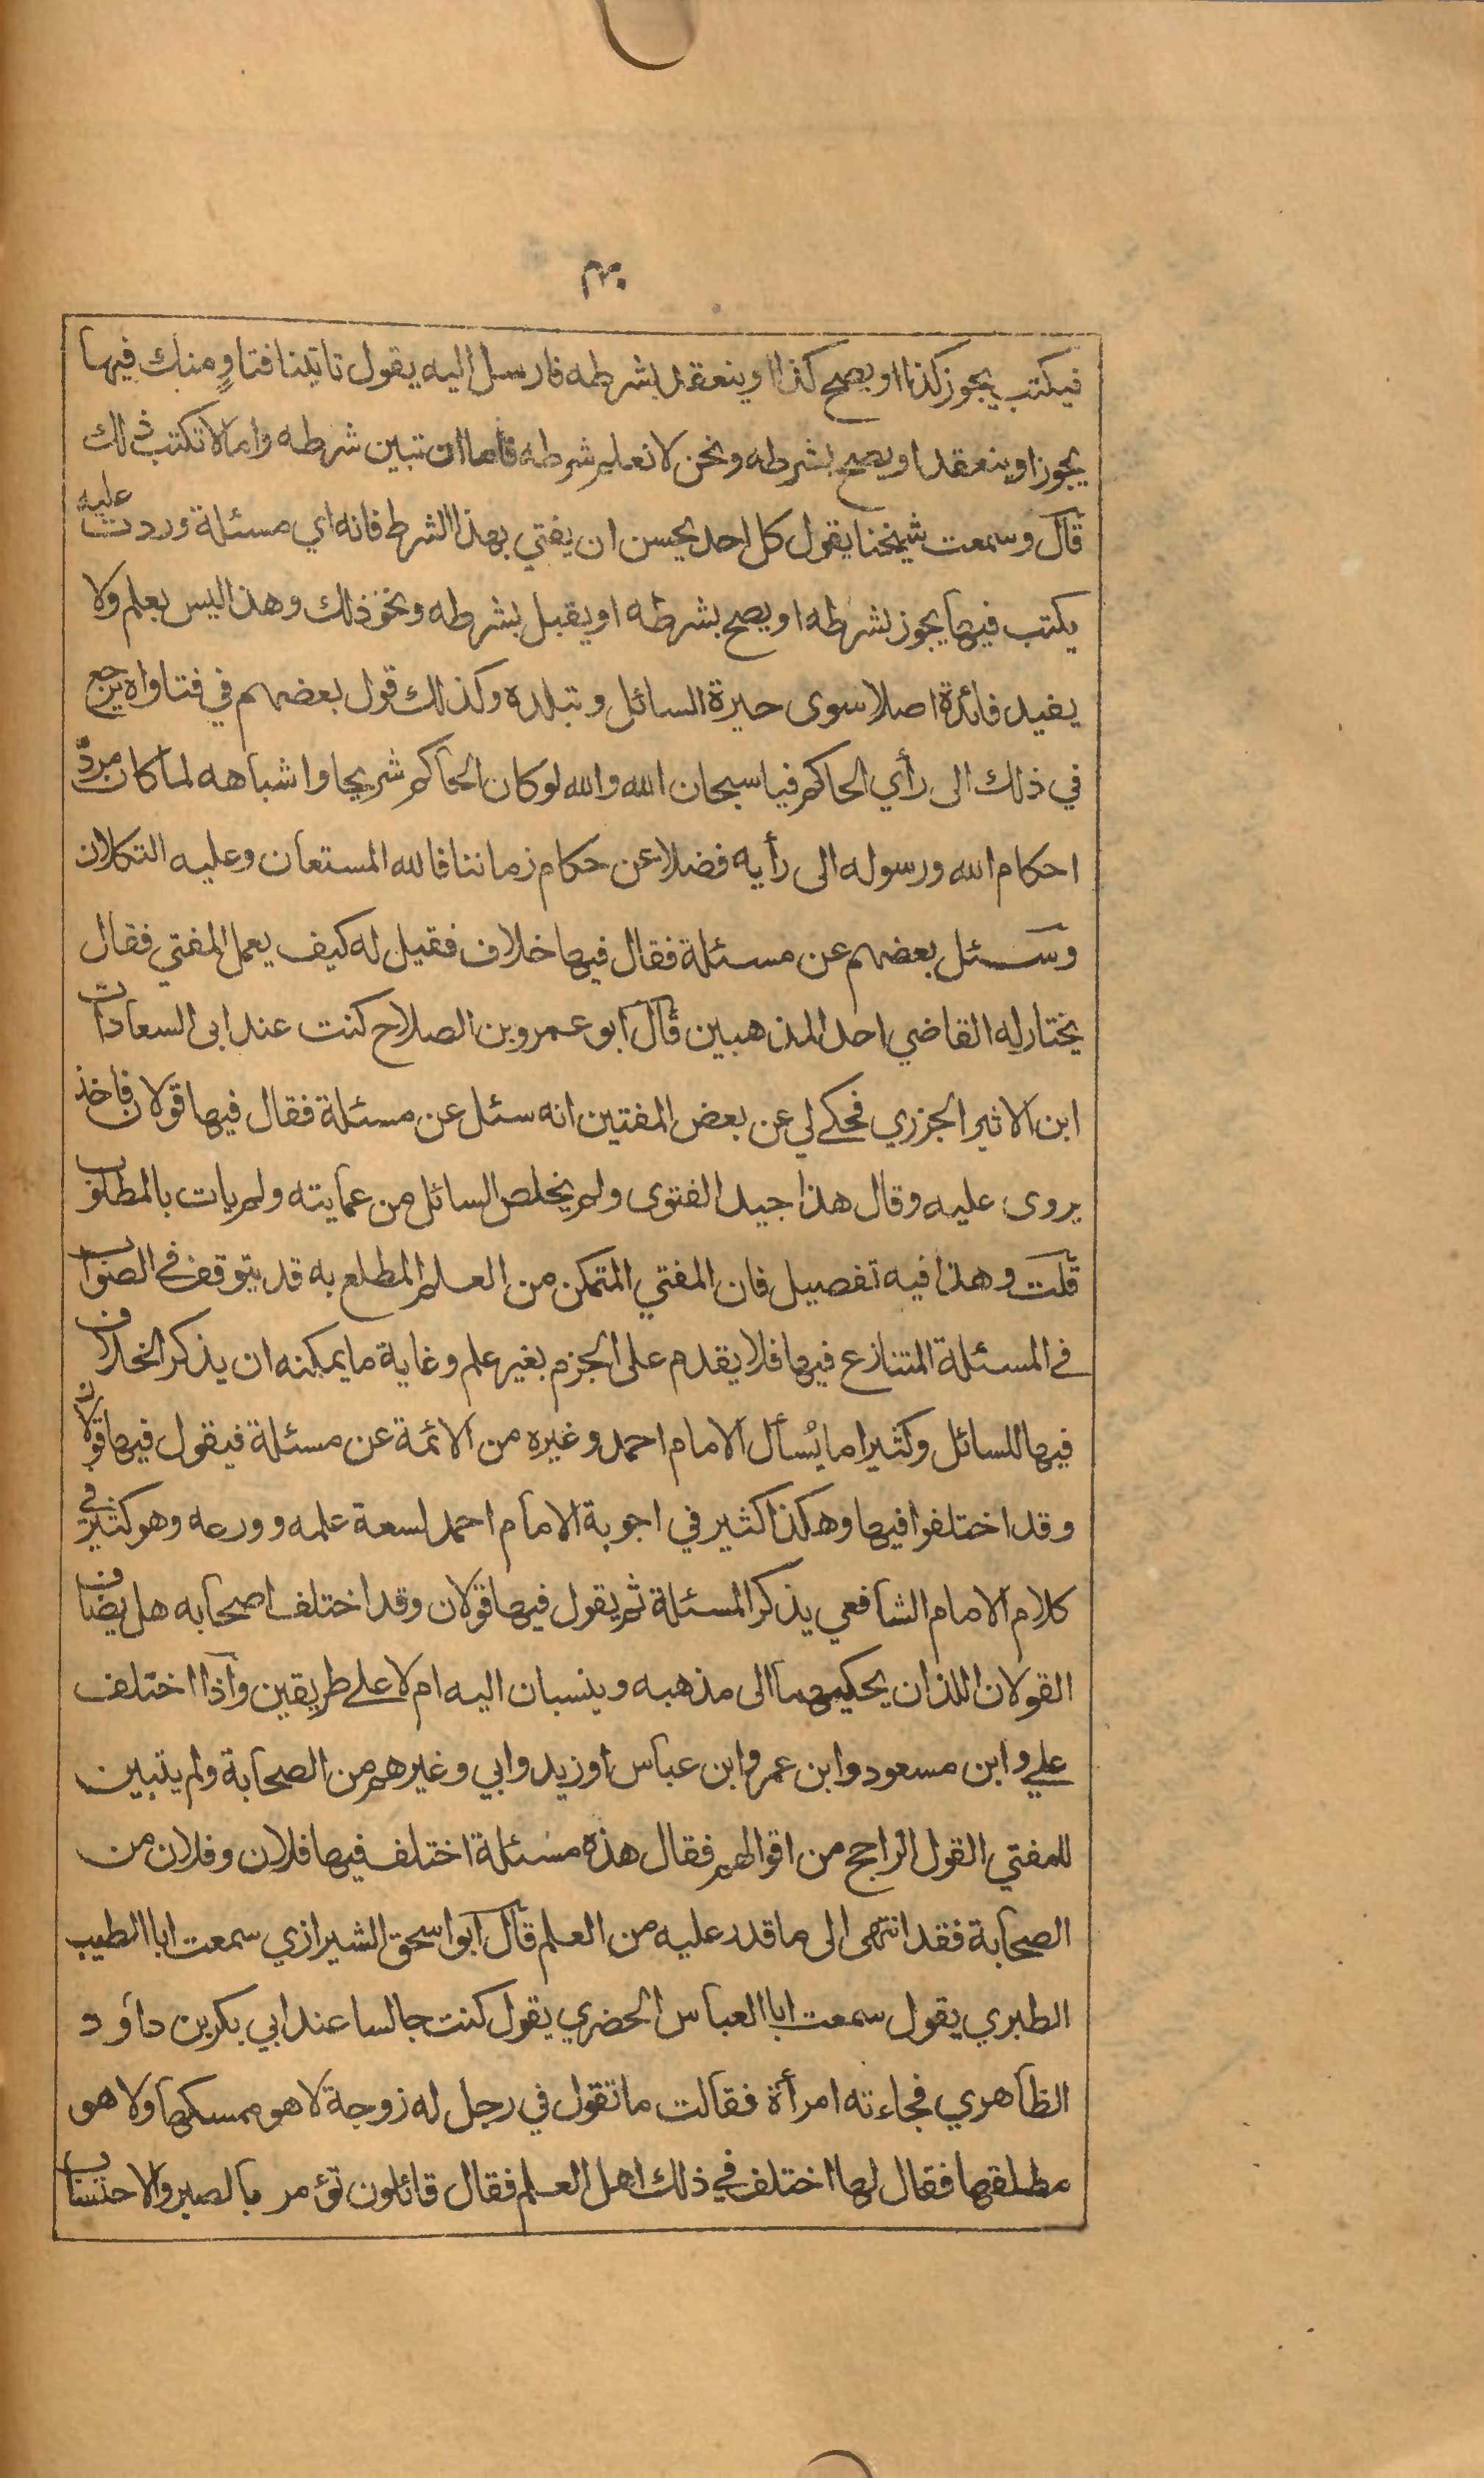 فيكتب يجوز كذا او يصح كذا او ينعقد بشرطه فارسل اليه يقول تاتينا فتاوٍ منك فيها
يجوز او ينعقد او يصح بشرطه ونحن لا نعلم شرطه فاما ان تبين شرطه واما لا تكتب ذلك
قال وسمعت شيخنا يقول كل احد يحسن ان يفتي بهذا الشرط فانه اي مسئلة وردت عليه
يكتب فيها يجوز بشرطه او يصح بشرطه او يقبل بشرطه ونحو ذلك وهذا ليس بعلم ولا
يفيد فائدة اصلا سوى حيرة السائل وتبلده وكذلك قول بعضهم في فتاواه يرجع
في ذلك الى رأي الحاكم فيا سبحان الله والله لو كان الحاكم شريحا واشباهه لما كان مردّ
احكام الله ورسوله الى رأيه فضلا عن حكام زماننا فالله المستعان وعليه التكلان
وسئل بعضهم عن مسئلة فقال فيها خلاف فقيل له كيف يعمل المفتي فقال
يختار له القاضي احد المذهبين قال ابو عمرو بن الصلاح كنت عند ابى السعادات
ابن الاثير الجزري فحكے لي عن بعض المفتين انه سئل عن مسئلة فقال فيها قولان فاخذ
يروى عليه وقال هذا جيد الفتوى ولم يخلص السائل من عمايته ولم يات بالمطلوب
قلت وهذا فيه تفصيل فان المفتي المتمكن من العلم المطلع به قد يتوقف في الصواب
في المسئلة المتنازع فيها فلا يقدم على الجزم بغير علم وغاية ما يمكنه ان يذكر الخلاف
فيها للسائل وكثيرا ما يُسأل الامام احمد وغيره من الائمة عن مسئلة فيقول فيها قولان
وقد اختلفوا فيها وهكذا كثير في اجوبة الامام احمد لسعة علمه وورعه وهو كثير في
كلام الامام الشافعي يذكر المسئلة ثم يقول فيها قولان وقد اختلف اصحابه هل يضاف
القولان اللذان يحكيهما الى مذهبه وينسبان اليه ام لا علے طريقين واذا اختلف
علي وابن مسعود وابن عمر وابن عباس او زيد وابي وغيرهم من الصحابة ولم يتبين
للمفتي القول الراجح من اقوالهم فقال هذه مسئلة اختلف فيها فلان وفلان من
الصحابة فقد انتهى الى ما قدر عليه من العلم قال ابو اسحق الشيرازي سمعت ابا الطيب
الطبري يقول سمعت ابا العباس الحضري يقول كنت جالسا عند ابي بكر بن داود
الظاهري فجاءته امرأة فقالت ما تقول في رجل له زوجة لا هو ممسكها ولا هو
مطلقها فقال لها اختلف في ذلك اهل العلم فقال قائلون تؤمر بالصبر والاحتساب